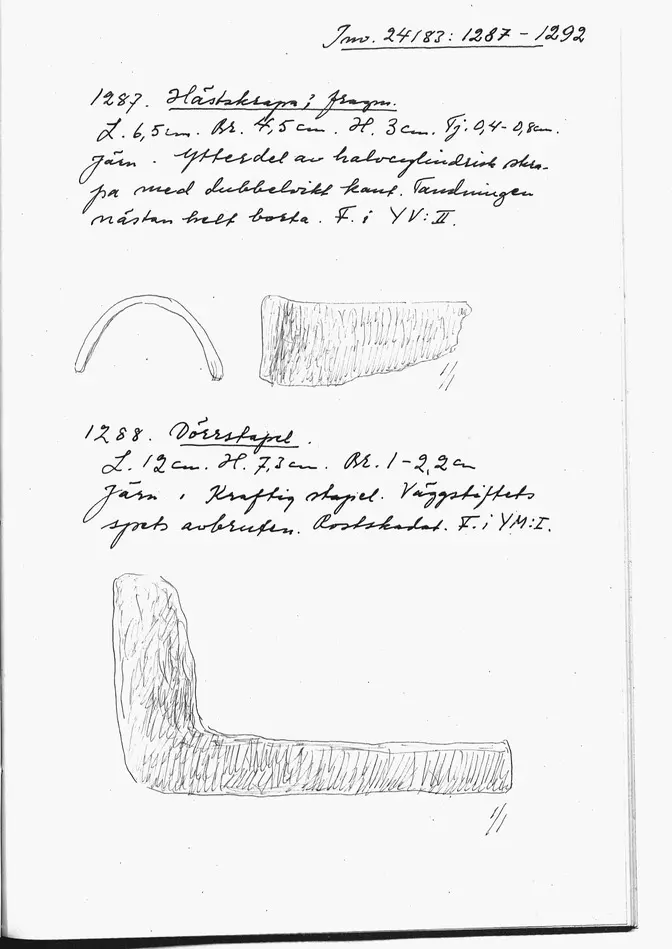 Inv. 24183: 1287 - 1292
1287. Hästskrapa; fragm.
L. 6,5 cm. Br. 4,5 cm. H. 3 cm. Tj. 0,4-0,8 cm.
Järn. Ytterdel av halvcylindrisk skra-
pa med dubbelvikt kant. Tandningen
nästan helt borta. F. i YV:II.
1/1
1288. Dörrstapel.
L. 12 cm. H. 7,3 cm. Br. 1-2,2 cm
Järn. Kraftig stapel. Väggstiftets
spets avbruten. Rostskadat. F. i YM:I.
1/1